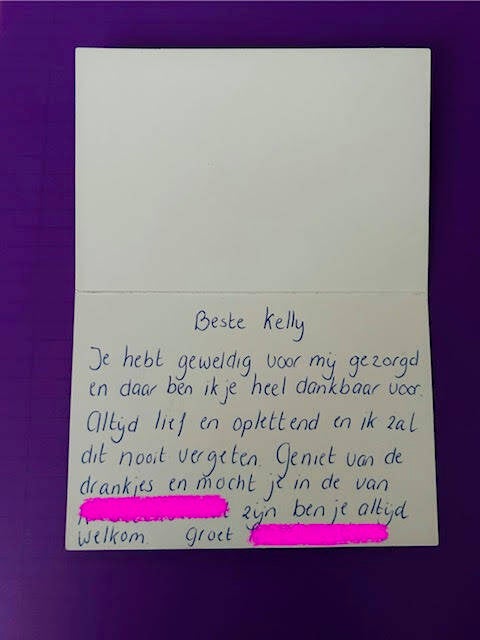 Beste Kelly
Je hebt geweldig voor mij gezorgd
en daar ben ik je heel dankbaar voor.
Altijd lief en oplettend en ik zal
dit nooit vergeten. Geniet van de
drankjes en mocht je in de van
zijn ben je altijd
welkom. Groet